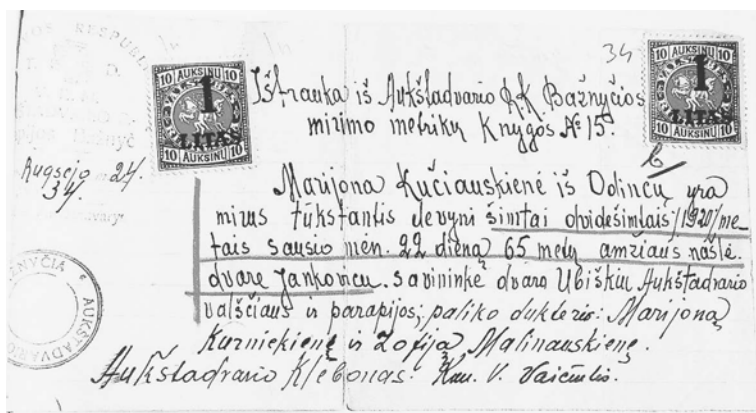 OS RESPUBL
34
10 AUKSINŲ 10
1
LITAS
10 AUKSINŲ 10
10 AUKSINŲ 10
1
LITAS
10 AUKSINŲ 10
Ištrauka iš Aukštadvario R.K. Bažnyčios
mirimo metrikų Knygos № 15.
Rugsėjo 24.
34.
Marijona Kučiauskienė iš Odincų yra
mirus tūkstantis devyni šimtai dvidešimtais /1920/ me-
tais sausio mėn. 22 dieną 65 metų amžiaus našlė
dvare Jankovicu. savininkė dvaro Ubiškių Aukštadvario
valščiaus ir parapijos; paliko dukteris: Marijoną
Kurniekienę ir Zofiją Malinauskienę.
Aukštadvario Klebonas: Kun. V. Vaičiulis.
AUKSTADVARIO